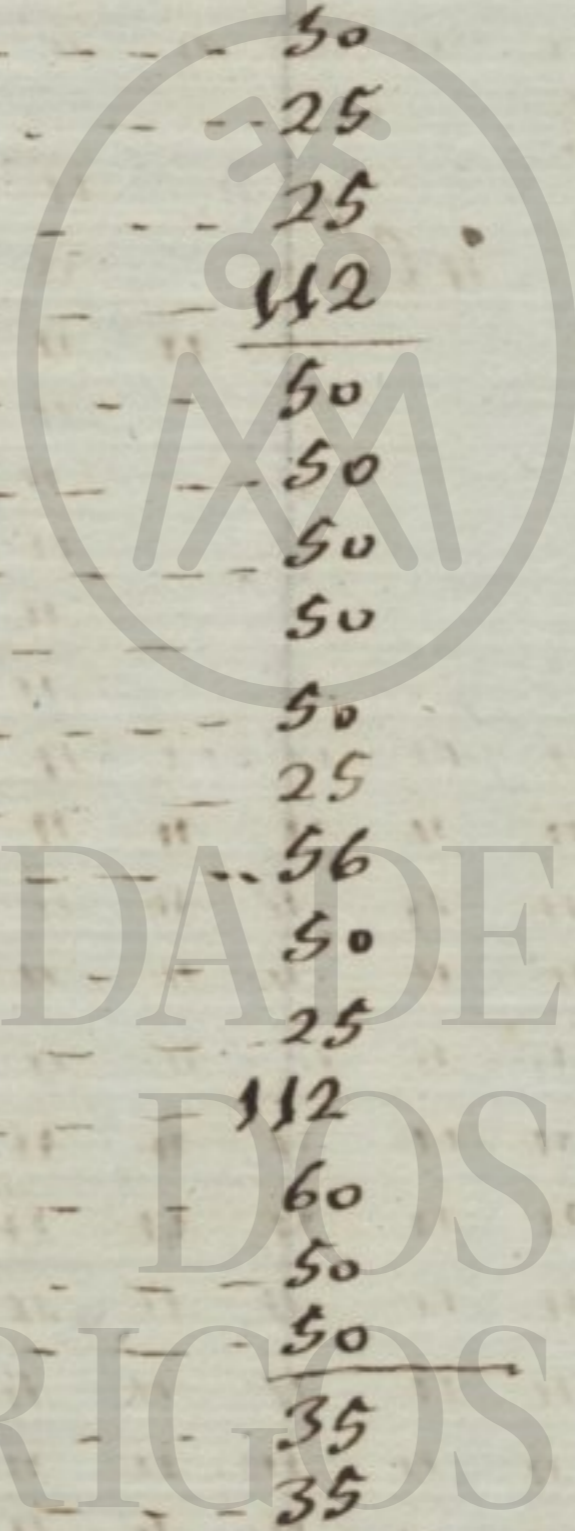 50
25
25
112
50
50
50
50
50
25
56
50
25
112
60
50
50
35
35
DADE
DOS
RIGOS